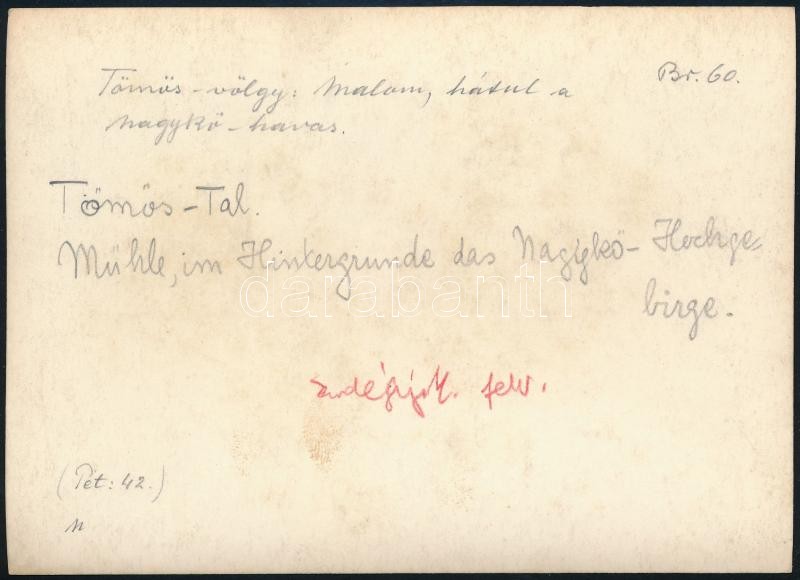 Br. 60.
Tömös-völgy: Malom, hátul a
Nagykő-havas.
Tömös-Tal.
Mühle, im Hintergrunde das Nagykő-Hochge=
birge.
darabanth
felv.
(Pét: 42.)